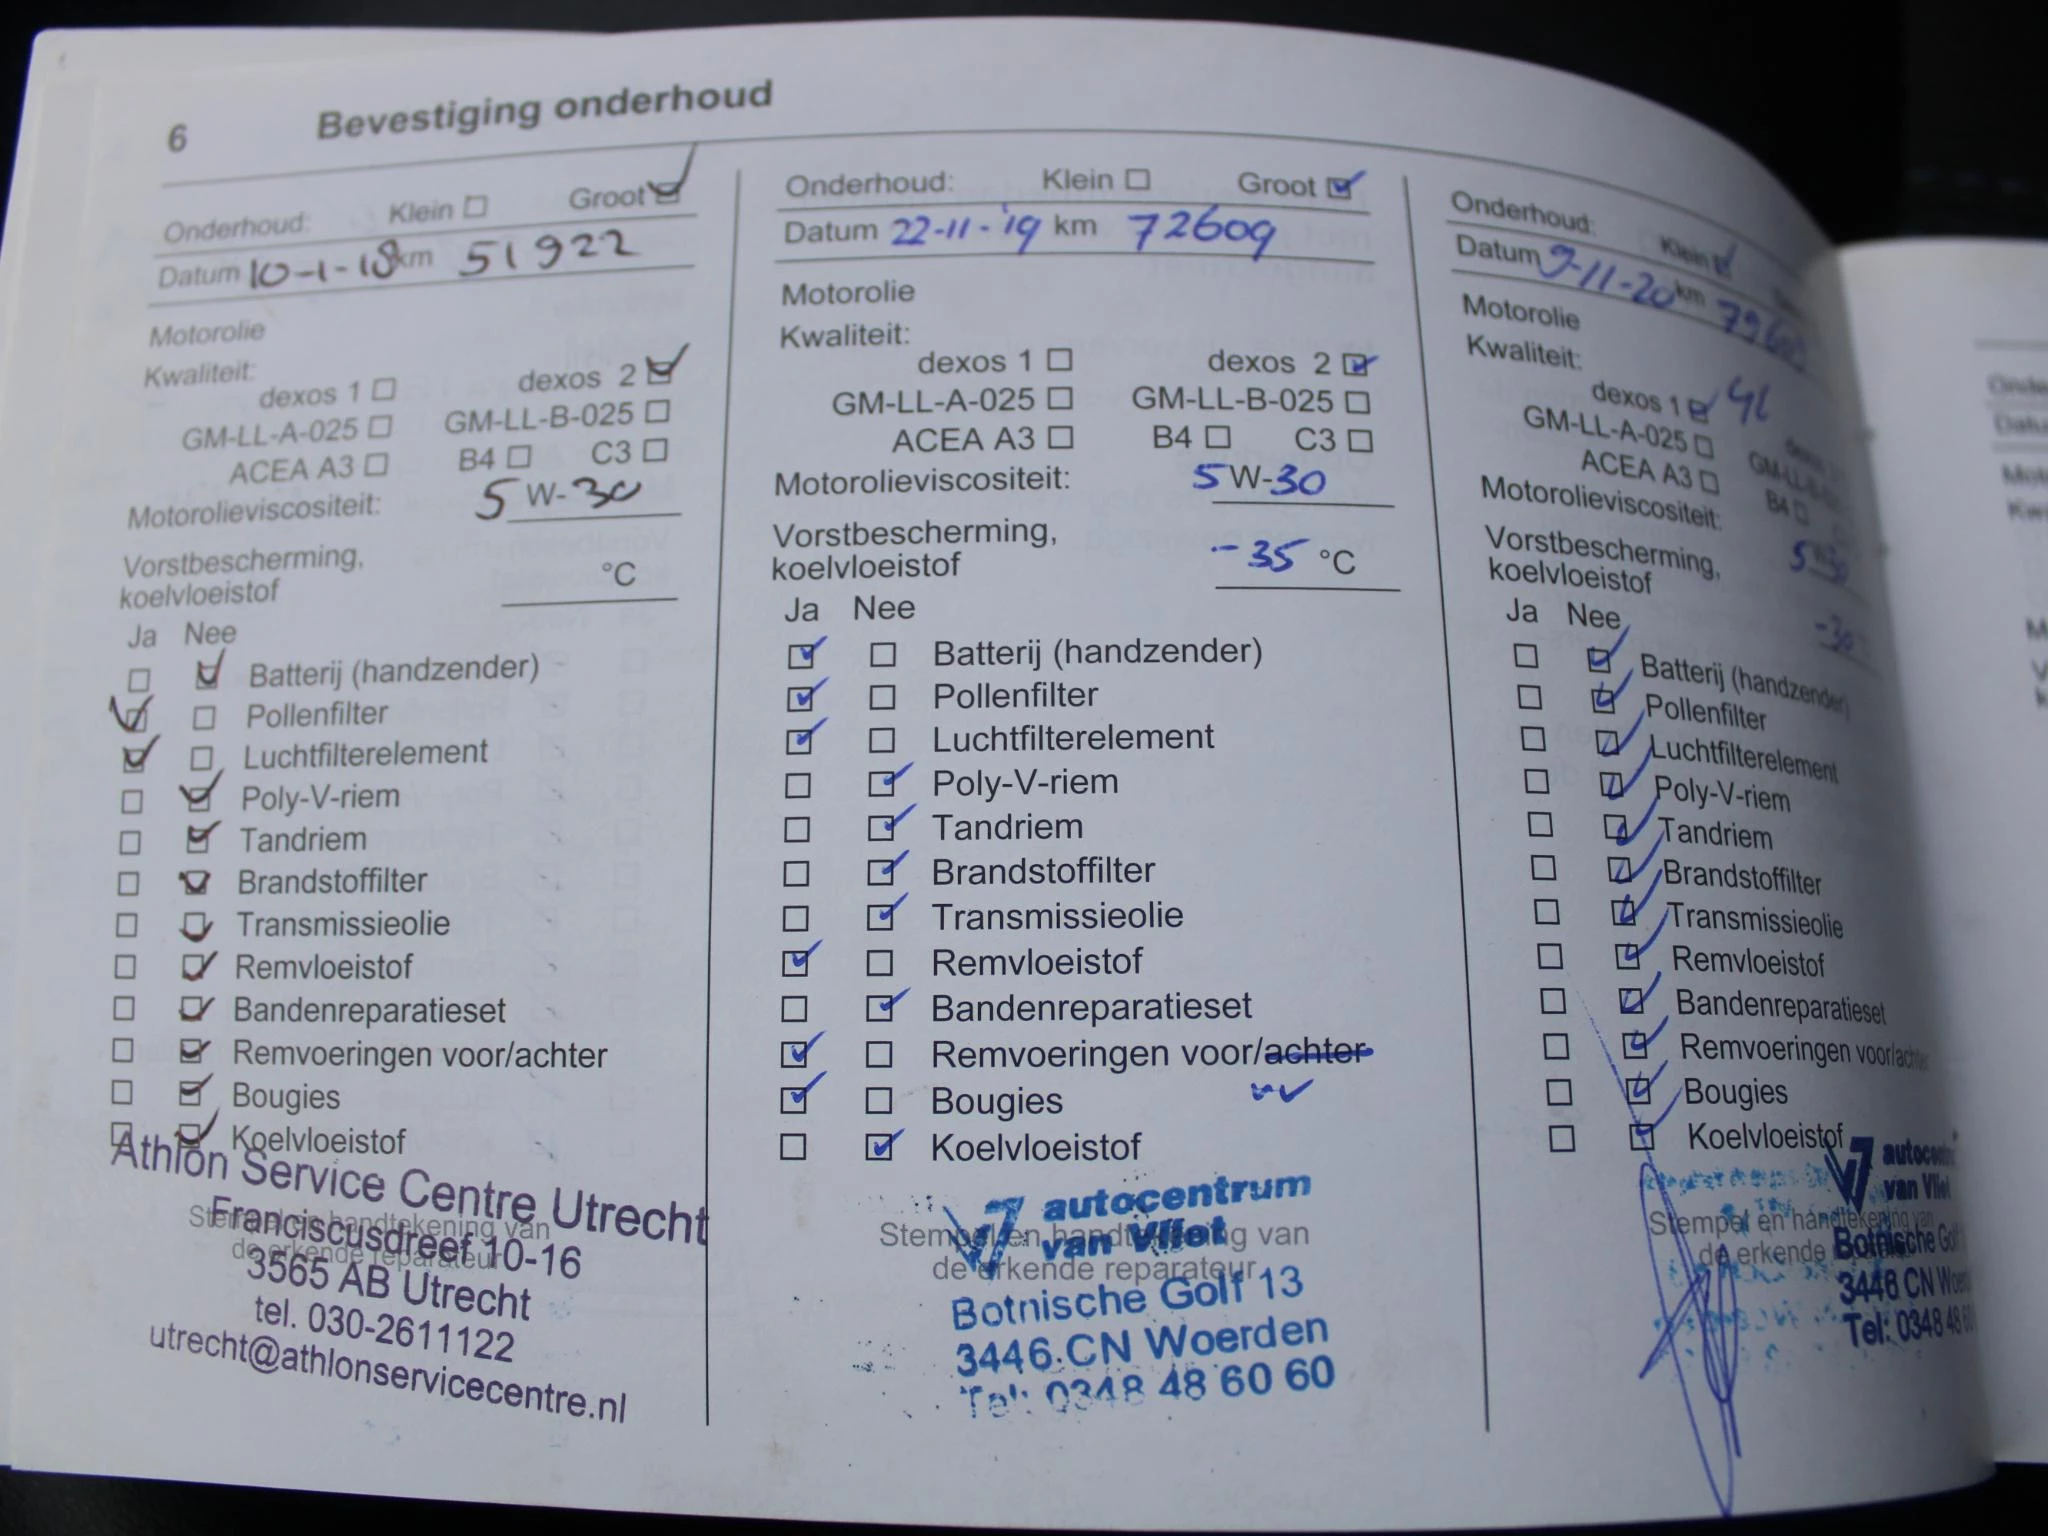 6 Bevestiging onderhoud
Onderhoud: Klein Groot
Datum 10-1-18 km 51922
Motorolie
Kwaliteit:
dexos 1 dexos 2
GM-LL-A-025 GM-LL-B-025
ACEA A3 B4 C3
Motorolieviscositeit: 5 W-30
Vorstbescherming,
koelvloeistof °C
Ja Nee
Batterij (handzender)
Pollenfilter
Luchtfilterelement
Poly-V-riem
Tandriem
Brandstoffilter
Transmissieolie
Remvloeistof
Bandenreparatieset
Remvoeringen voor/achter
Bougies
Koelvloeistof
Stempel en handtekening van
de erkende reparateur
Athlon Service Centre Utrecht
Franciscusdreef 10-16
3565 AB Utrecht
tel. 030-2611122
utrecht@athlonservicecentre.nl
Onderhoud: Klein Groot
Datum 22-11-'19 km 72609
Motorolie
Kwaliteit:
dexos 1 dexos 2
GM-LL-A-025 GM-LL-B-025
ACEA A3 B4 C3
Motorolieviscositeit: 5 W-30
Vorstbescherming,
koelvloeistof -35 °C
Ja Nee
Batterij (handzender)
Pollenfilter
Luchtfilterelement
Poly-V-riem
Tandriem
Brandstoffilter
Transmissieolie
Remvloeistof
Bandenreparatieset
Remvoeringen voor/achter
Bougies
Koelvloeistof
Stempel en handtekening van
de erkende reparateur
autocentrum
van Vliet
Botnische Golf 13
3446 CN Woerden
Tel: 0348 48 60 60
Onderhoud: Klein
Datum 9-11-20 km
Motorolie
Kwaliteit:
dexos 1 4L
GM-LL-A-025 GM-LL-B-025
ACEA A3 B4
Motorolieviscositeit:
5 W-30
Vorstbescherming,
koelvloeistof
-30
Ja Nee
Batterij (handzender)
Pollenfilter
Luchtfilterelement
Poly-V-riem
Tandriem
Brandstoffilter
Transmissieolie
Remvloeistof
Bandenreparatieset
Remvoeringen voor/achter
Bougies
Koelvloeistof
Stempel en handtekening van
de erkende
autocentru
van Vliet
Botnische Golf
3446 CN Woerd
Tel: 0348 48 60